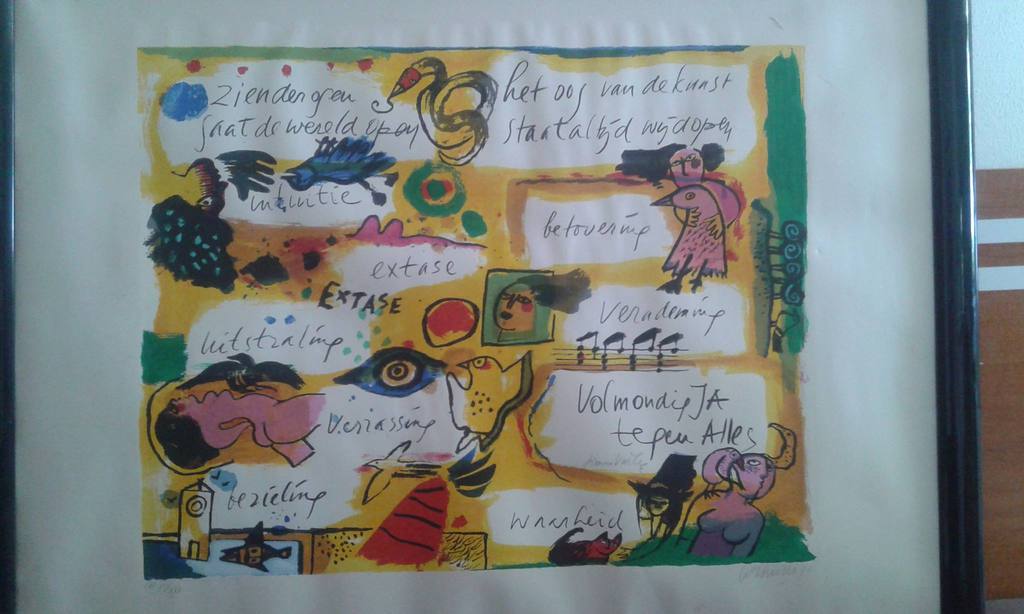 Zienderogen
gaat de wereld open
het oog van de kunst
staat altijd wijd open
intuitie
betovering
extase
EXTASE
verademing
uitstraling
Volmondig JA
tegen Alles
verrassing
bezieling
waarheid